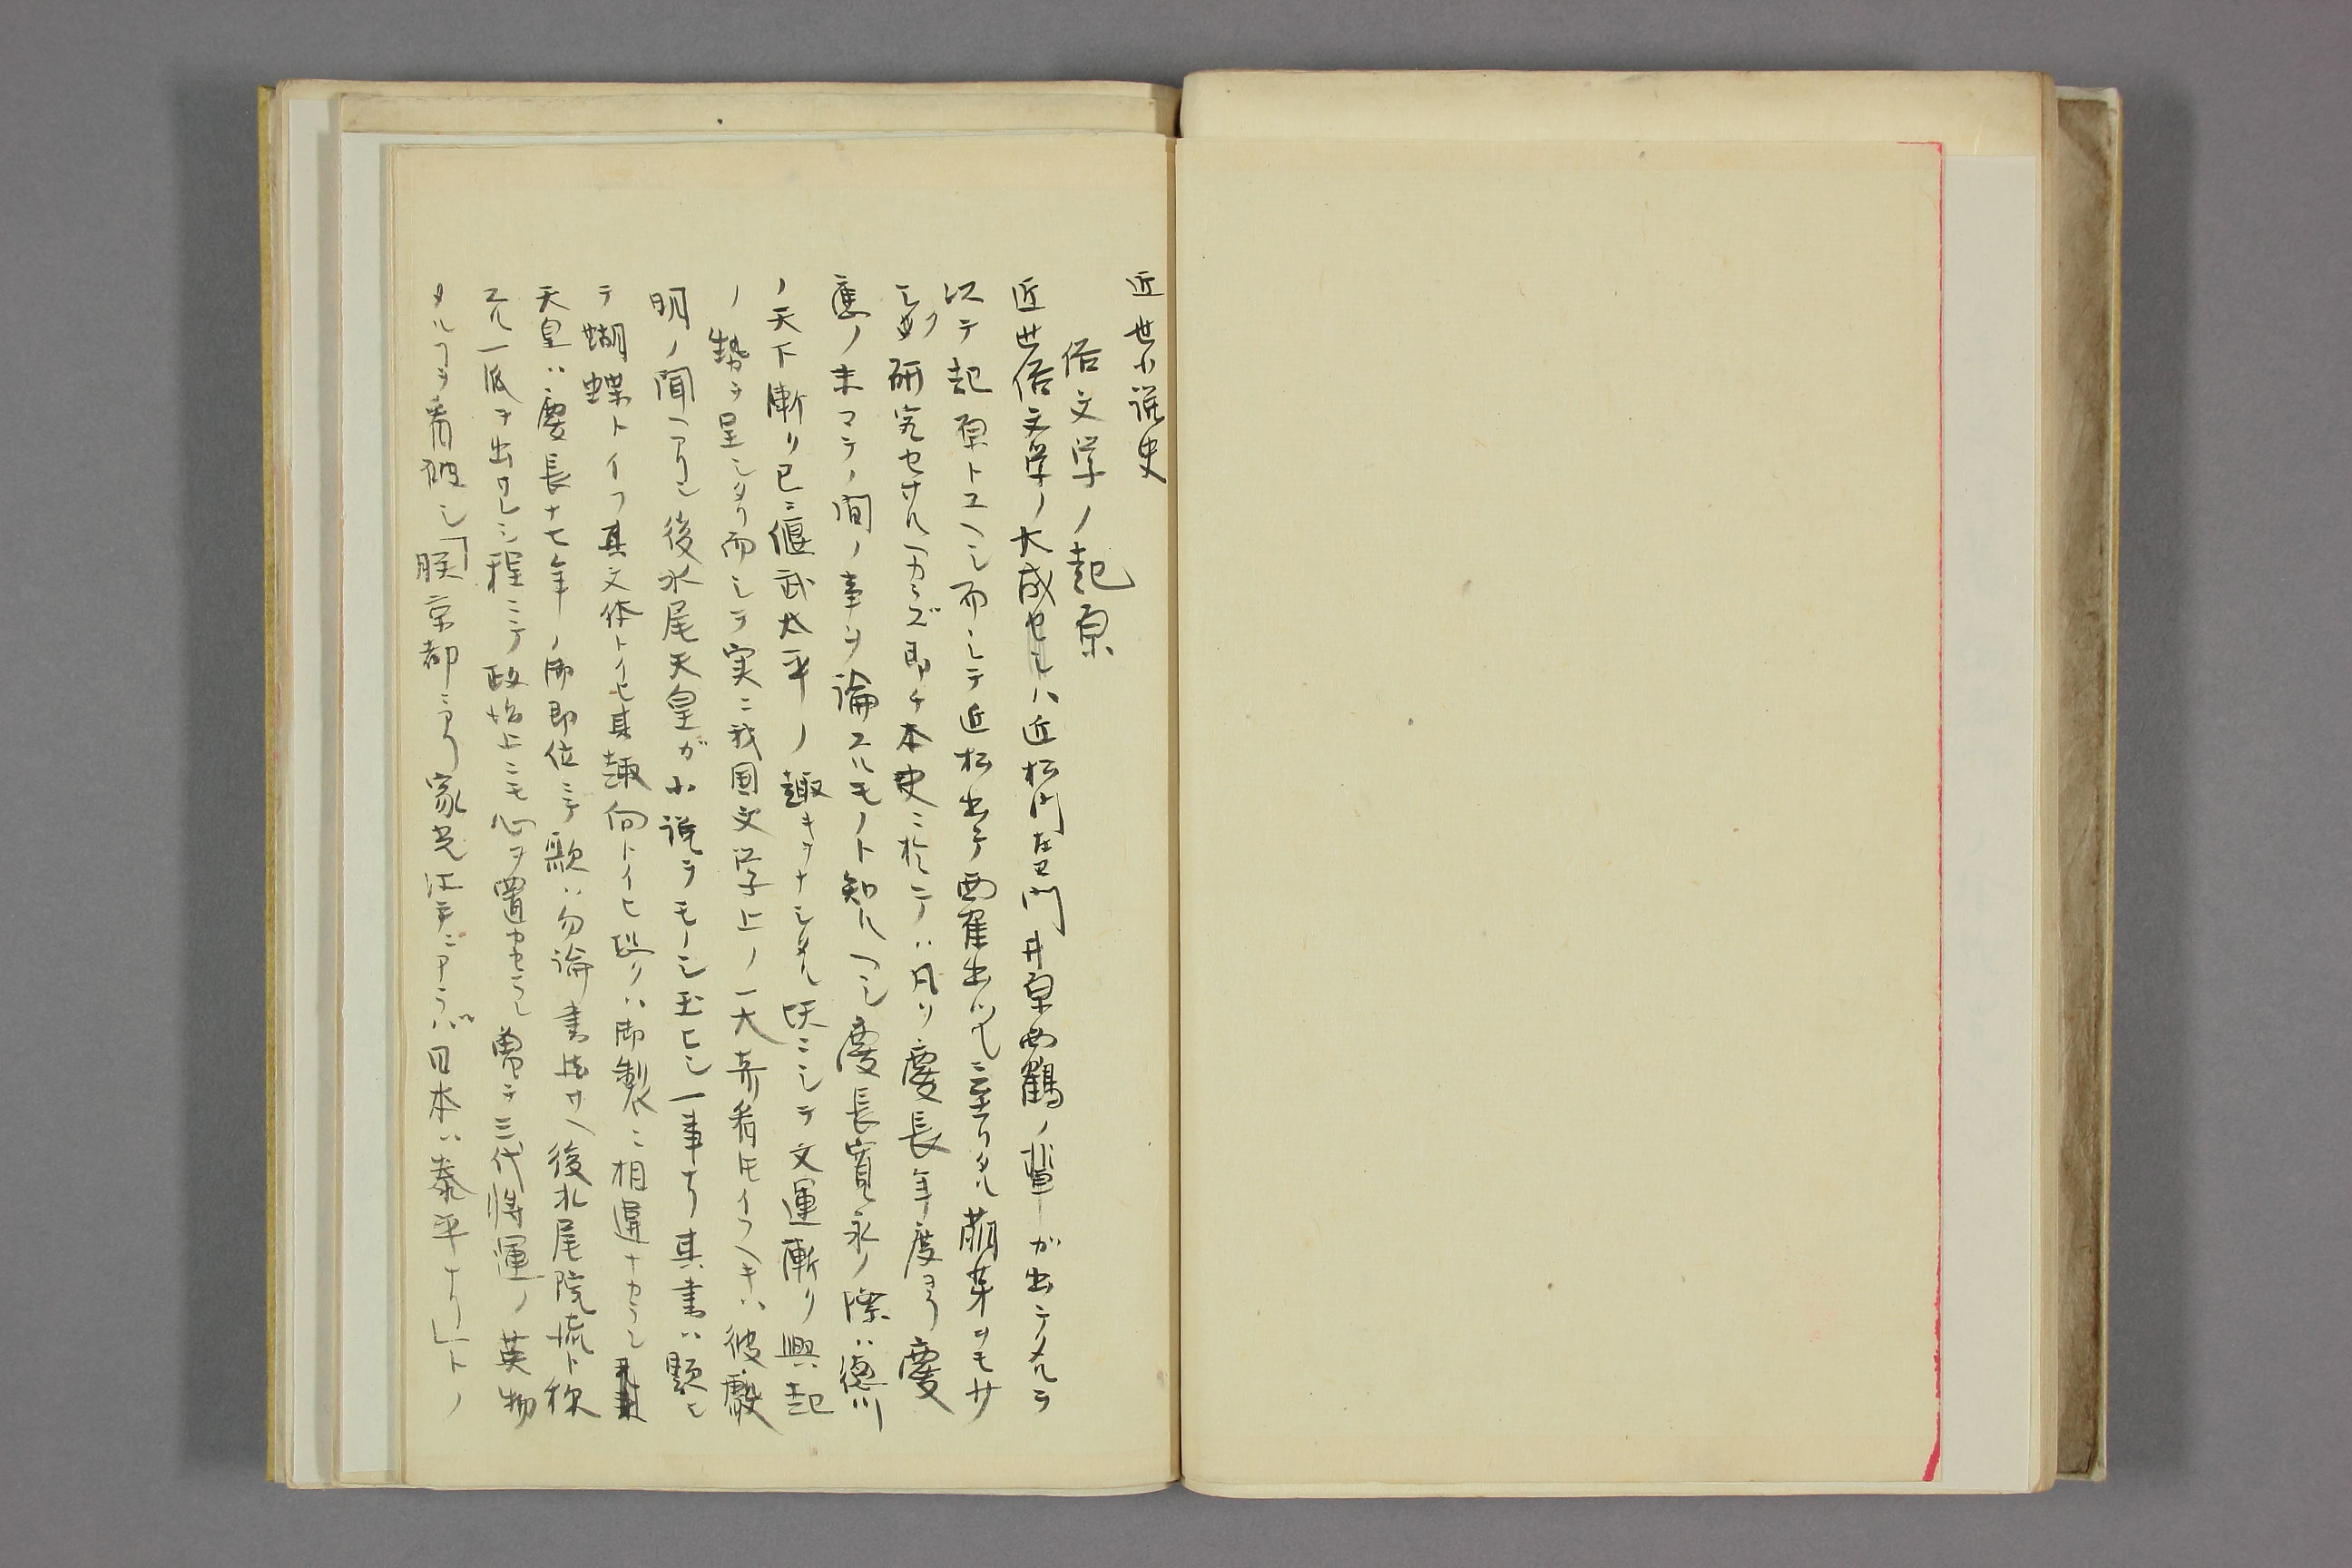 近世小説史
俗文学ノ起原
近世俗文学ノ大成セシハ近松門左エ門井原西鶴ノ輩ガ出テタルヲ
以テ起原トスヘシ而シテ近松出テ西隺出ツルニ至リタル萌芽ヲモサ
シメ研究セサルヘカラズ即チ本史ニ於テハ凡ソ慶長年度ヨリ慶
應ノ末マテノ間ノ事ヲ論スルモノト知ルヘシ慶長寛永ノ際ハ徳川
ノ天下漸ク已ニ偃武太平ノ趣キヲナシタル時ニシテ文運漸ク興起
ノ勢ヲ呈シタリ而シテ実ニ我国文学上ノ一大奇看トモイフヘキハ彼ノ厳
明ノ聞ヘアリシ後水尾天皇ガ小説ヲモノシ玉ヒシ一事ナリ其書ハ題シ
テ蝴蝶トイフ其文体トイヒ其趣向トイヒ疑ハ御製ニ相違ナカラン
天皇ハ慶長十七年ノ御即位ニテ歌ハ勿論書法サヘ後水尾院流ト称
スル一派ヲ出サレシ程ニテ政治上ニモ心ヲ置カセラレ曽テ三代将軍ノ英物
タルヿヲ看破シ「朕京都ニアリ家光江戸ニアラバ日本ハ泰平ナリ」トノ